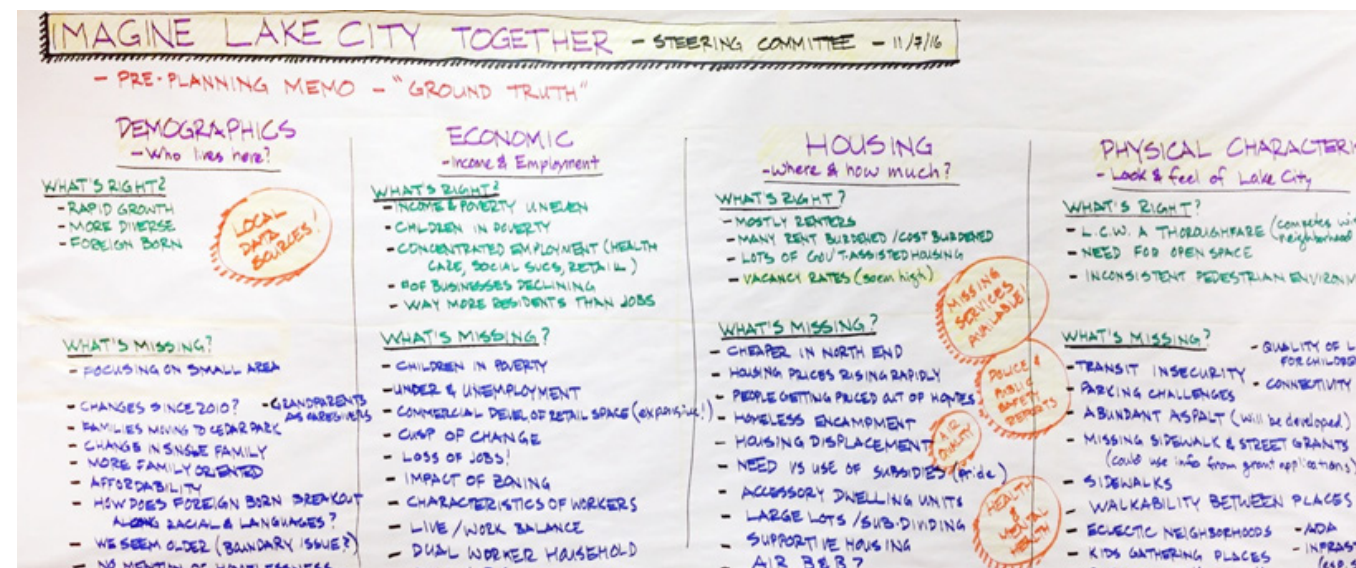 IMAGINE LAKE CITY TOGETHER - STEERING COMMITTEE - 11/7/16
- PRE-PLANNING MEMO - "GROUND TRUTH"
DEMOGRAPHICS
- Who lives here?
WHAT'S RIGHT?
- RAPID GROWTH
- MORE DIVERSE
- FOREIGN BORN
LOCAL
DATA
SOURCES!
WHAT'S MISSING?
- FOCUSING ON SMALL AREA
- CHANGES SINCE 2010?
- GRANDPARENTS
AS CAREGIVERS
- FAMILIES MOVING TO CEDAR PARK
- CHANGE IN SINGLE FAMILY
- MORE FAMILY ORIENTED
- AFFORDABILITY
- HOW DOES FOREIGN BORN BREAKOUT
ALONG RACIAL & LANGUAGES?
- WE SEEM OLDER (BOUNDARY ISSUE?)
- NO MENTION OF HOMELESSNESS
ECONOMIC
- Income & Employment
WHAT'S RIGHT?
- INCOME & POVERTY UNEVEN
- CHILDREN IN POVERTY
- CONCENTRATED EMPLOYMENT (HEALTH
CARE, SOCIAL SVCS, RETAIL)
- # OF BUSINESSES DECLINING
- WAY MORE RESIDENTS THAN JOBS
WHAT'S MISSING?
- CHILDREN IN POVERTY
- UNDER & UNEMPLOYMENT
- COMMERCIAL DEVEL OF RETAIL SPACE (expansive!)
- CUSP OF CHANGE
- LOSS OF JOBS!
- IMPACT OF ZONING
- CHARACTERISTICS OF WORKERS
- LIVE/WORK BALANCE
- DUAL WORKER HOUSEHOLD
HOUSING
- Where & how much?
WHAT'S RIGHT?
- MOSTLY RENTERS
- MANY RENT BURDENED/COST BURDENED
- LOTS OF GOV'T-ASSISTED HOUSING
- VACANCY RATES (seem high)
MISSING
SERVICES
AVAILABLE!
WHAT'S MISSING?
- CHEAPER IN NORTH END
- HOUSING PRICES RISING RAPIDLY
- PEOPLE GETTING PRICED OUT OF HOMES
- HOMELESS ENCAMPMENT
- HOUSING DISPLACEMENT
- NEED VS USE OF SUBSIDIES (Pride)
- ACCESSORY DWELLING UNITS
- LARGE LOTS/SUB-DIVIDING
- SUPPORTIVE HOUSING
AIR B&B?
POLICE &
PUBLIC
SAFETY
REPORTS
AIR
QUALITY
HEALTH
&
MENTAL
HEALTH
PHYSICAL CHARACTERI
- Look & feel of Lake City
WHAT'S RIGHT?
- L.C.W. A THOROUGHFARE (competes wi
neighborhood
- NEED FOR OPEN SPACE
- INCONSISTENT PEDESTRIAN ENVIRONM
WHAT'S MISSING?
- QUALITY OF L
FOR CHILDRE
- TRANSIT INSECURITY
- CONNECTIVITY
- PARKING CHALLENGES
- ABUNDANT ASPALT (will be developed)
- MISSING SIDEWALK & STREET GRANTS
(could use info from grant applications)
- SIDEWALKS
- WALKABILITY BETWEEN PLACES
- ECLECTIC NEIGHBORHOODS
- ADA
- KIDS GATHERING PLACES
- INFRAST
(esp. s